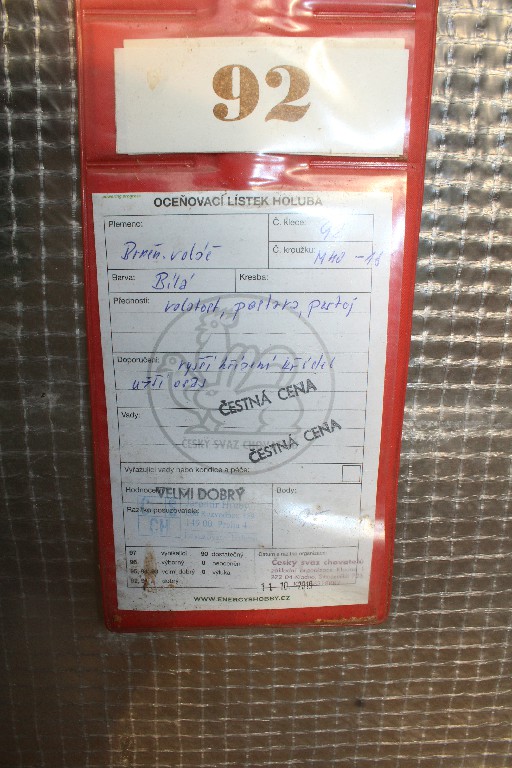 92
OCEŇOVACÍ LÍSTEK HOLUBA
Plemeno:
Brněn. voláč
Č. klece:
Č. kroužku:
Barva: Bílá
Kresba:
Přednosti: volatost, postava, postoj
Doporučení: vyšší křížení křídel
užší ocas
ČESTNÁ CENA
Vady:
ČESTNÁ CENA
ČESKÝ SVAZ CHOVATELŮ
Vyřazující vady nebo kondice a péče:
Hodnocení: VELMI DOBRÝ
Body:
Razítko posuzovatele:
CH
149 00, Praha 4
97 vynikající 90 dostatečný
96 výborný 0 nehodnocen
95, 94, 93 velmi dobrý 0 výluka
92, 91 dobrý
Datum a razítko organizace:
Český svaz chovatelů
základní organizace Kladno
11 -10- 2019
WWW.ENERGYSHOBBY.CZ